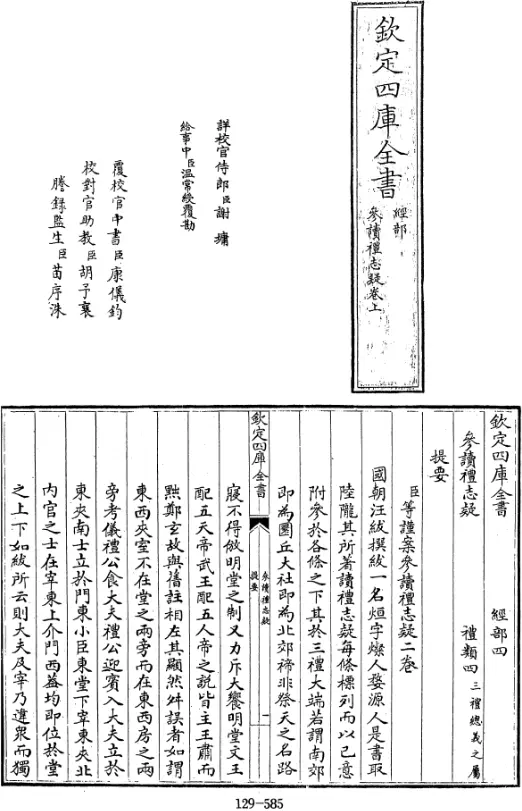 欽定四庫全書
經部
參讀禮志疑卷上
詳校官侍郎臣謝墉
給事中臣溫常綬覆勘
覆校官中書臣康儀鈞
校對官助教臣胡予襄
謄錄監生臣苗序洙
欽定四庫全書 經部四
參讀禮志疑 禮類四 三禮總義之屬
提要
臣等謹案參讀禮志疑二卷
國朝汪紱撰紱一名烜字燦人婺源人是書取
陸隴其所著讀禮志疑每條標列而以己意
附參於各條之下其於三禮大端若謂南郊
即為圜丘大社即為北郊禘非祭天之名路
欽定四庫全書
參讀禮志疑
提要
一
寢不得倣明堂之制又力斥大饗明堂文王
配五天帝武王配五人帝之説皆主王肅而
黜鄭玄故與舊註相左其顯然舛誤者如謂
東西夾室不在堂之兩旁而在東西房之兩
旁考儀禮公食大夫禮公迎賓入大夫立於
東夾南士立於門東小臣東堂下宰東夾北
內官之士在宰東上介門西葢均即位於堂
之上下如紱所云則大夫及宰乃違衆而獨
129-585